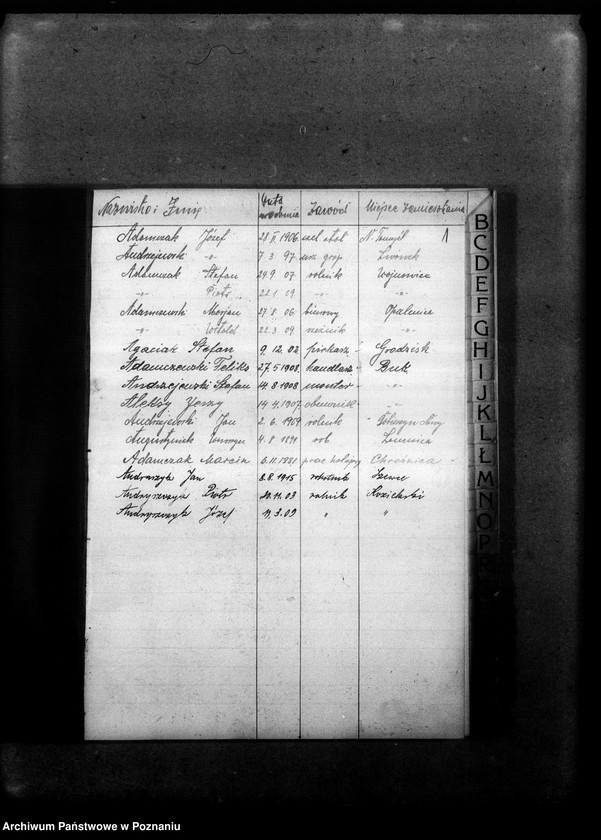 Nazwisko i Imię Data urodzenia Zawód Miejsce Zamieszkania
1
Adamczak Józef 28 II 1906 N. Tomyśl
Andrzejewski -"- 7 3. 97 Lwówek
Adamczak Stefan 24.9 07 rolnik Wojnowice
-"- Piotr 22.1 09 -"- -"-
Adamczewski Marjan 27.8. 06 biurowy Opalenica
-"- Witold 22.3.09 rzeźnik -"-
Agaciak Stefan 9.12.02 piekarz Grodzisk
Adamczewski Feliks 27.5 1908 handlarz Buk
Andrzejewski Stefan 14.8 1908 monter -"-
Aleksy Jerzy 14.4.1907 -"-
Andrzejewski Jan 2.6.1909 rolnik
Augustyniak 4.8 1891 rob
Adamczak Marcin 6.11.1881 prac kolejowy Chrośnica
Jan 8.8.1915 robotnik
Andryszczyk Piotr 20.11.03 rolnik
Andryszczyk Józef 11.3.09 " "
B
C
D
E
F
G
H
I
J
K
L
Ł
M
N
O
P
R
Archiwum Państwowe w Poznaniu